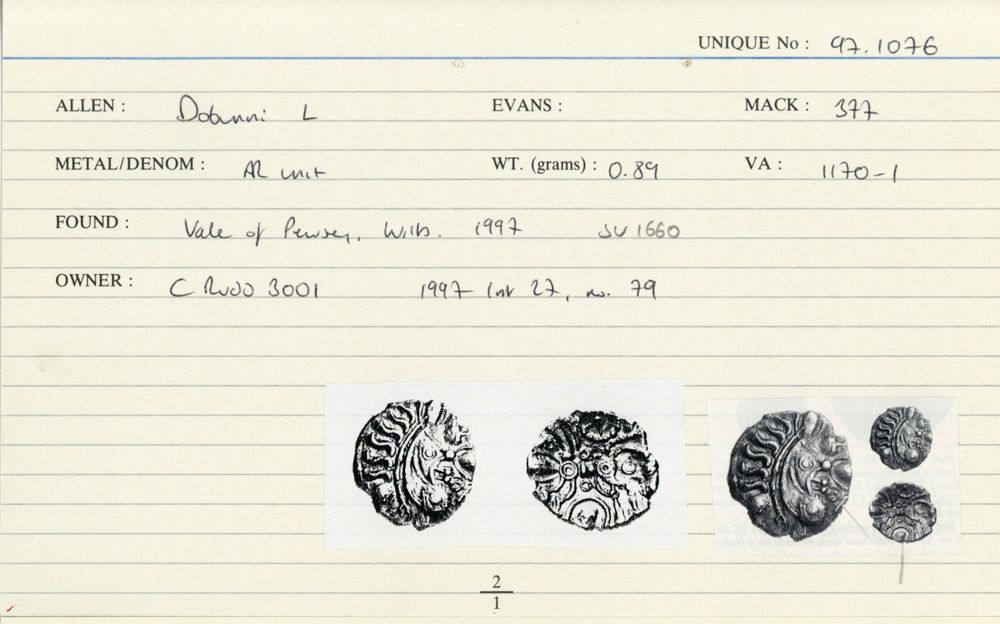 UNIQUE No : 97.1076
ALLEN : Dobunni L EVANS : MACK : 377
METAL/DENOM : AR unit WT. (grams) : 0.89 VA : 1170-1
FOUND : Vale of Pewsey, Wilts. 1997 SU 1660
OWNER : C RUDD 3001 1997 list 27, no. 79
2
1